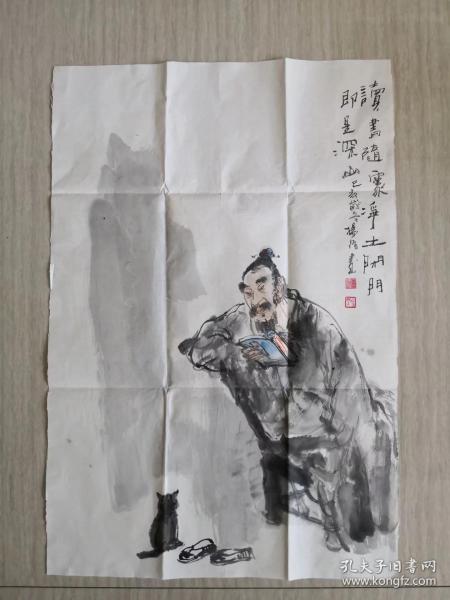 讀書隨處淨土閉門
即是深山己亥歲冬楊畫
孔夫子旧书网
www.kongfz.com